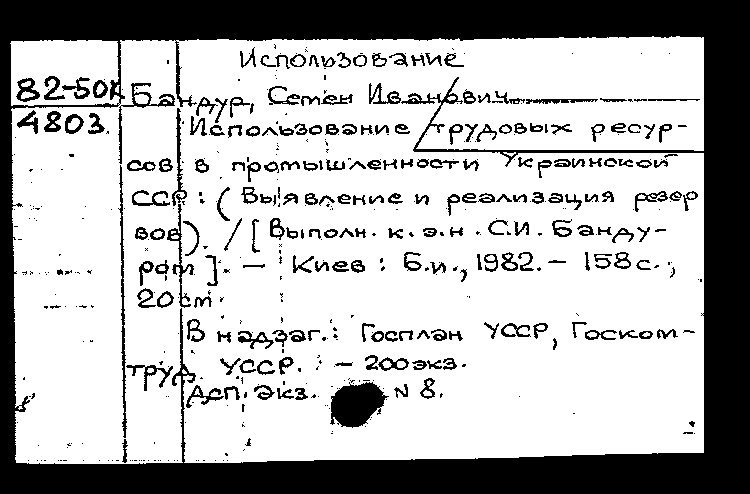 Использование
82-50к Бандур, Семен Иванович.
4803. Использование трудовых ресур-
сов в промышленности Украинской
ССР: (Выявление и реализация резер
вов). / [Выполн. к.э.н. С.И. Банду-
ром]. — Киев : Б.и., 1982. — 158 с.;
20 см.
В надзаг.: Госплан УССР, Госком-
труд УССР. — 200 экз.
Деп. экз. N 8.